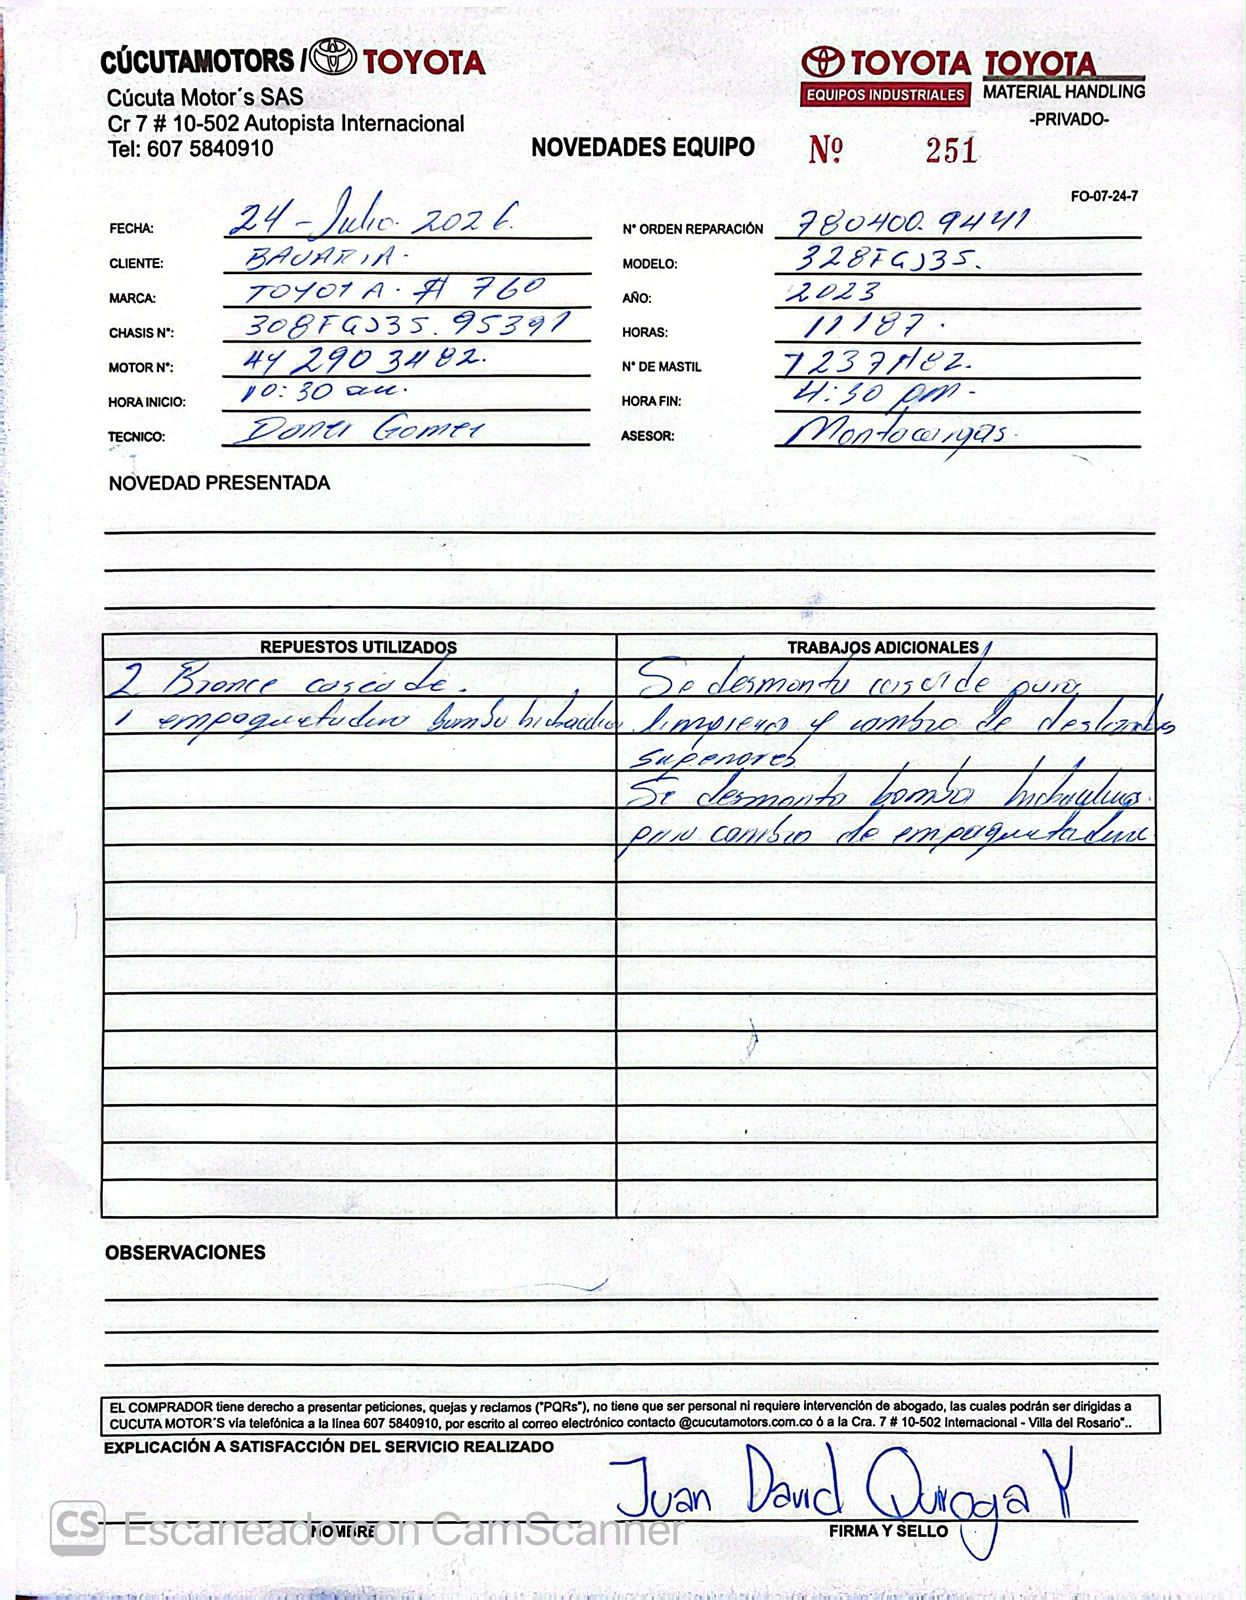 CÚCUTAMOTORS / TOYOTA
Cúcuta Motor´s SAS
Cr 7 # 10-502 Autopista Internacional
Tel: 607 5840910
TOYOTA EQUIPOS INDUSTRIALES
TOYOTA MATERIAL HANDLING
-PRIVADO-
NOVEDADES EQUIPO Nº 251
FO-07-24-7
FECHA: 24 - Julio. 2026. N° ORDEN REPARACIÓN 780400.9441
CLIENTE: BAVARIA. MODELO: 328FGJ35.
MARCA: TOYOTA. # 760 AÑO: 2023
CHASIS N°: 308FGJ35. 95391 HORAS: 11187.
MOTOR N°: 4Y 2903482. N° DE MASTIL
HORA INICIO: 10:30 am. HORA FIN: 4:30 pm-
TECNICO: Gomez ASESOR: Montacargas.
NOVEDAD PRESENTADA
REPUESTOS UTILIZADOS TRABAJOS ADICIONALES
2 Bronce cascade. Se desmonta cascade para
1 empaquetadura bomba hidraulica limpieza y cambio de deslizadores
superiores
Se desmonta bomba hidraulica.
para cambio de empaquetadura
OBSERVACIONES
EL COMPRADOR tiene derecho a presentar peticiones, quejas y reclamos ("PQRs"), no tiene que ser personal ni requiere intervención de abogado, las cuales podrán ser dirigidas a
CUCUTA MOTOR´S vía telefónica a la línea 607 5840910, por escrito al correo electrónico contacto @cucutamotors.com.co ó a la Cra. 7 # 10-502 Internacional - Villa del Rosario"..
EXPLICACIÓN A SATISFACCIÓN DEL SERVICIO REALIZADO
Juan David Quiroga Y
NOMBRE FIRMA Y SELLO
CS Escaneado con CamScanner